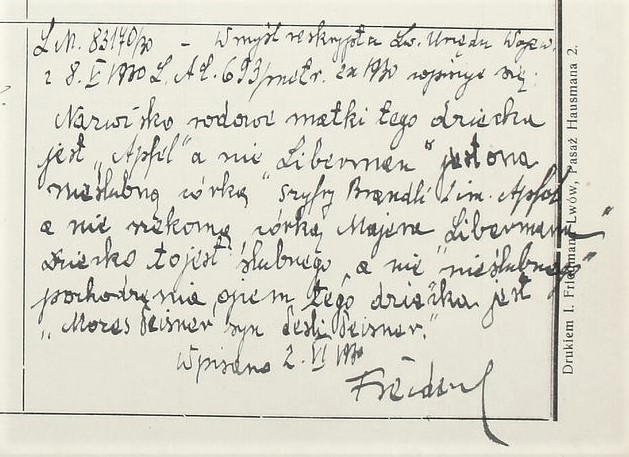 L.M. 83170/30 – W myśl reskryptu Lw. Urzędu Wojew.
z 8. V 1930 L. AC. 693/metr. ex 1930 wpisuje się:
Nazwisko rodowe matki tego dziecka
jest „Apfel" a nie Liberman" jest ona
nieślubną córką Szyfry Brandli 2 im. Apfel
a nie rzekomą córką Majera Libermana"
Dziecko to jest ślubnego a nie "nieślubnego"
pochodzenia ojcem tego dziecka jest
„Mozes Deisner syn Pesli Deisner."
Wpisano 2. VI 1930
Drukiem I. Friedmana, Lwów, Pasaż Hausmana 2.